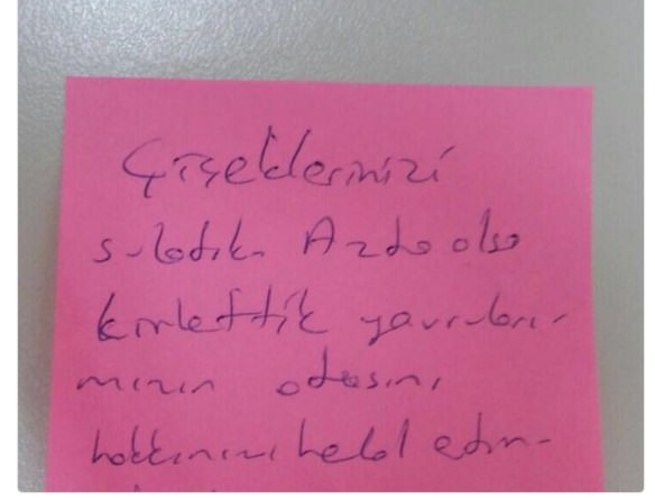 Çiçeklerinizi
suladık Azda olsa
kirlettik yavruları-
mızın odasını
hakkınızı helal edin-